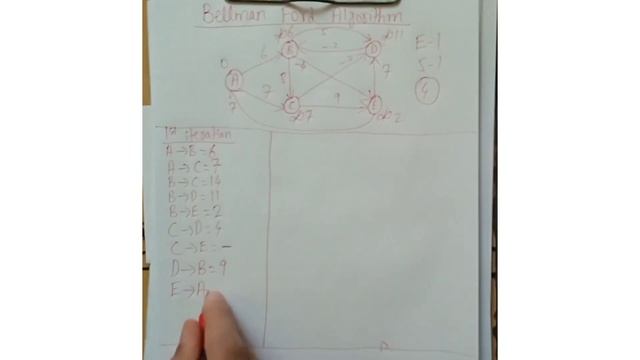 Bellman Ford Algorithm
∞6 5 ∞11
B -2 D
6 E-1
0 -4 5-1
A 8 -3 7 4
7
C 9 E
7 ∞7 ∞2
1st iteration
A→B=6
A→C=7
B→C=14
B→D=11
B→E=2
C→D=4
C→E=-
D→B=9
E→A